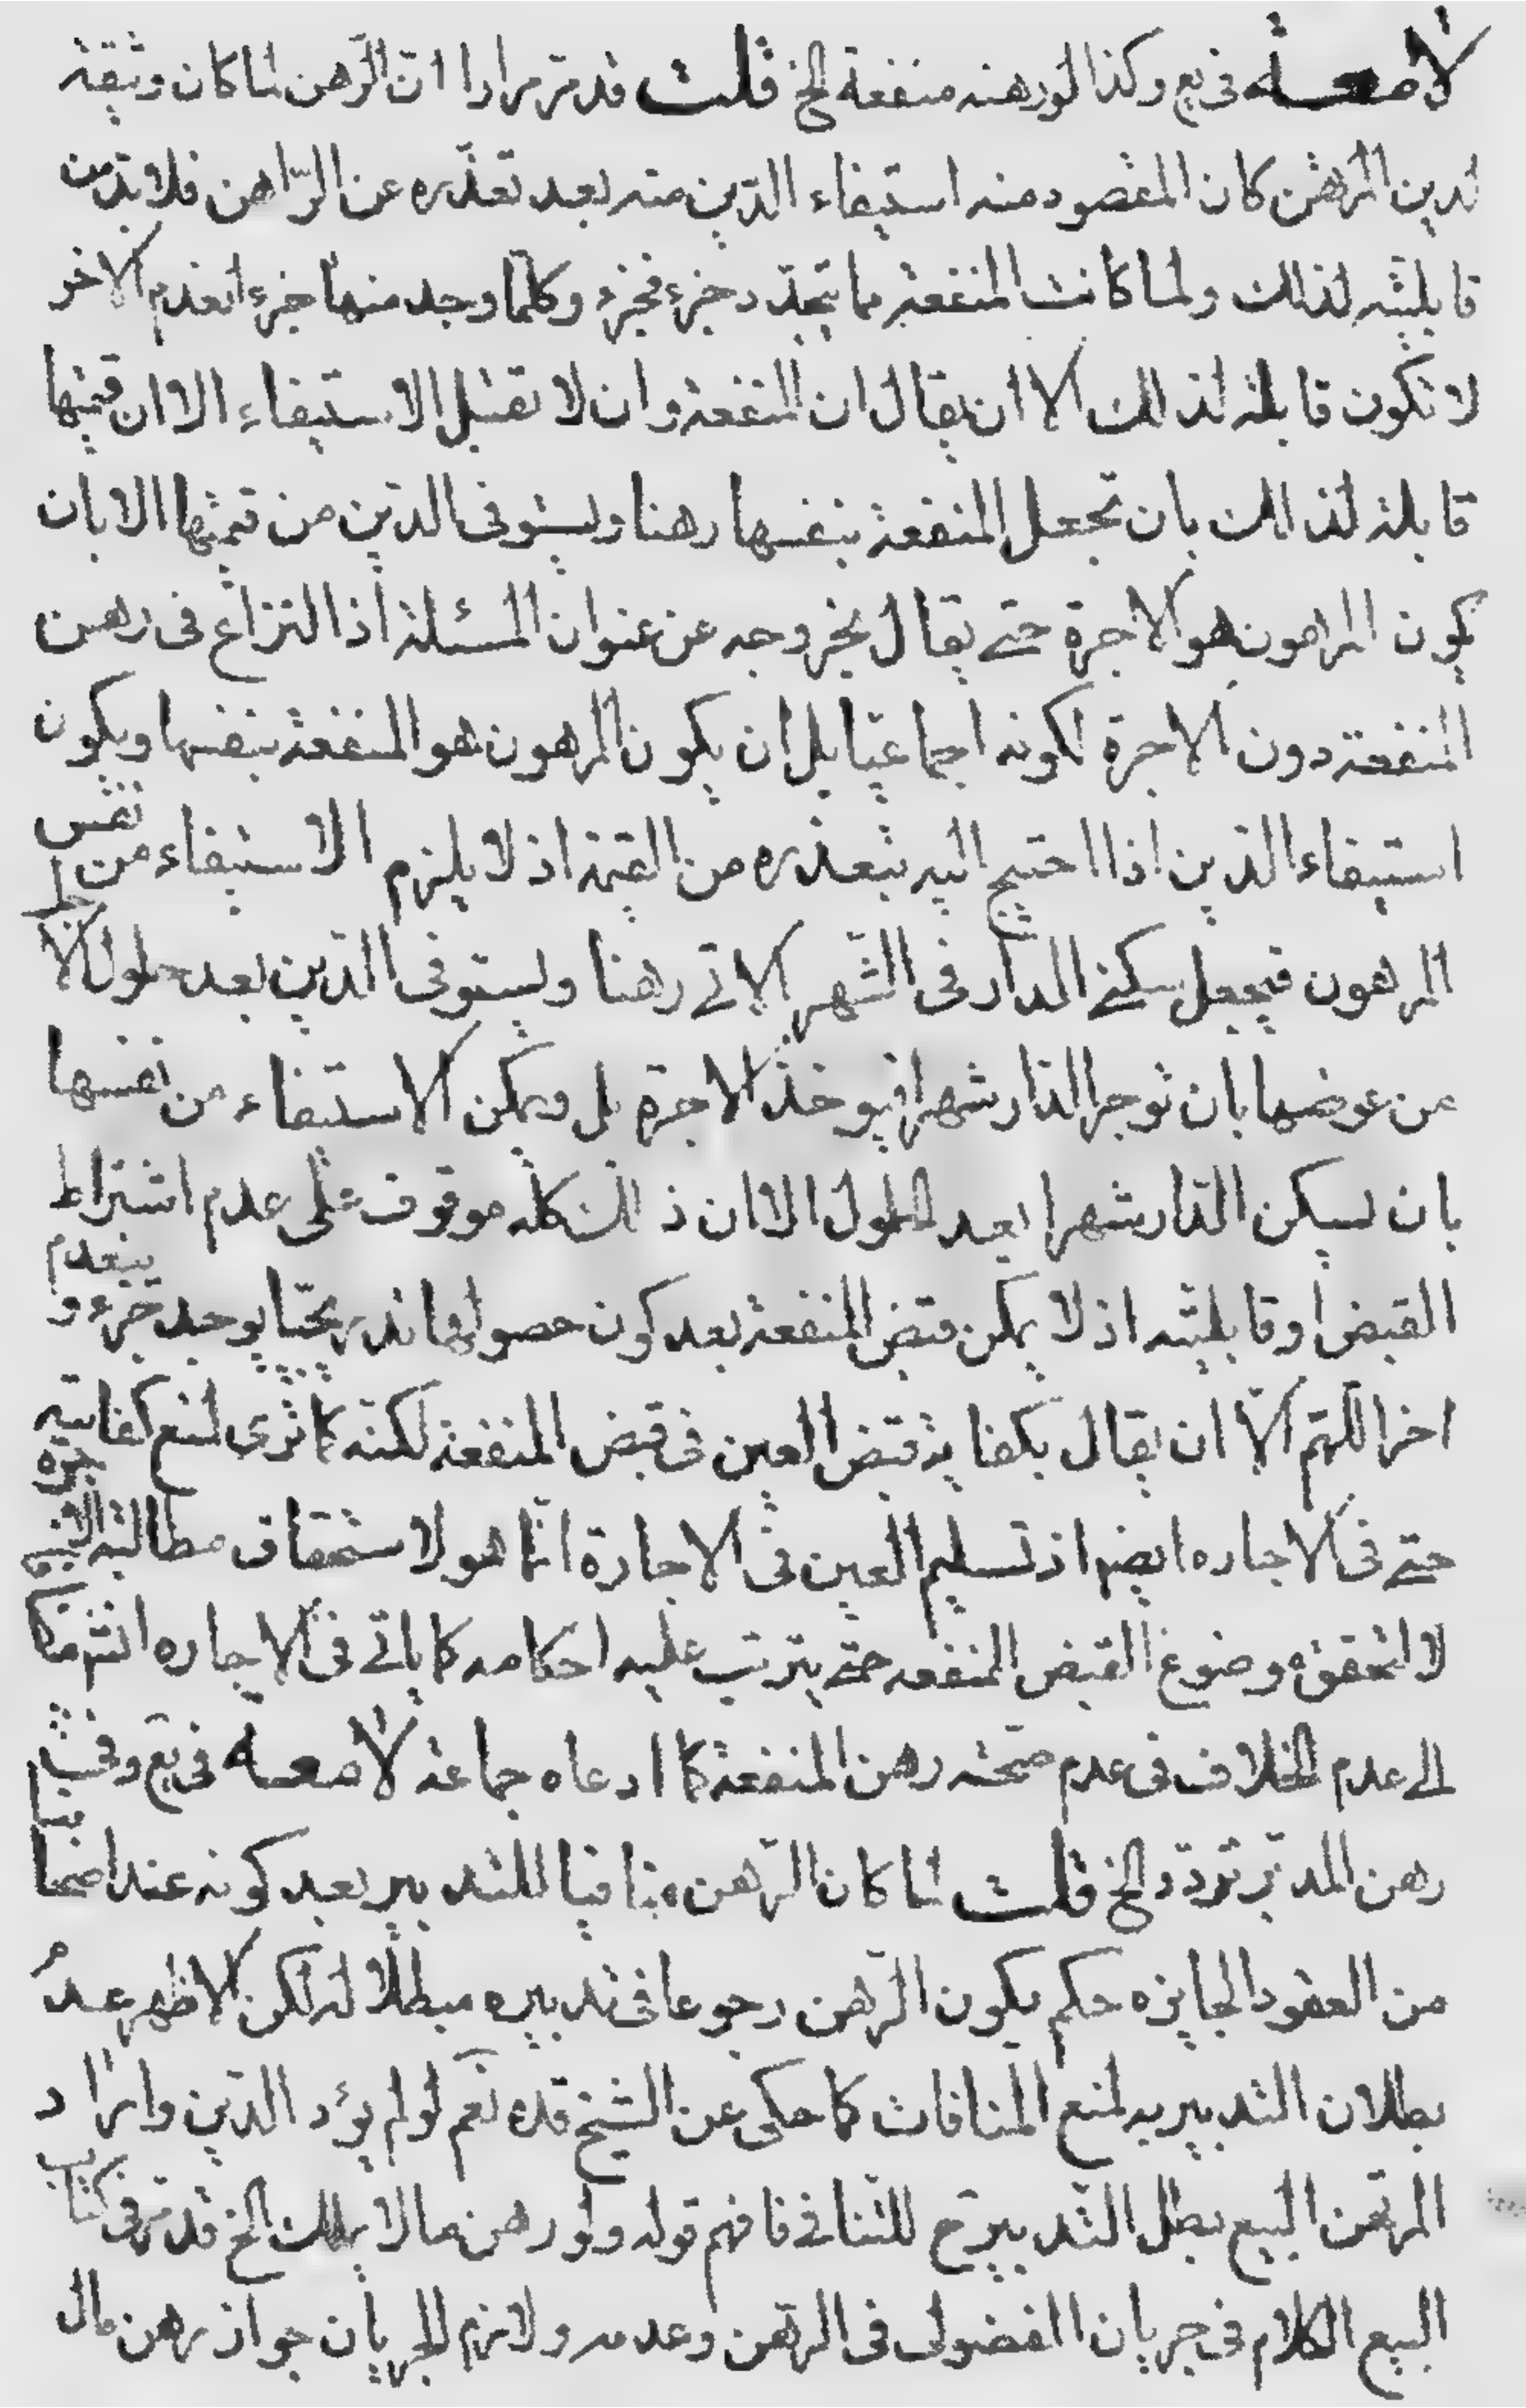 لا صعه في يع وكذا لو رهنه منفعة الخ قلت قد مر مرارا ان الرّهن لما كان وثيقة
لدين المرتهن كان المقصود منه استيفاء الدّين منه بعد تعذّره عن الرّاهن فلا بدّ من
قابليّته لذلك ولما كانت المنفعة مما يتجدّد جزء فجزء وكلّما وجد منها جزء انعدم الاخر
لا تكون قابلة لذلك الا ان يقال ان المنفعة وان لا تقبل الاستيفاء الا ان قيمتها
قابلة لذلك بان تجعل المنفعة بنفسها رهنا ويستوفى الدّين من قيمتها لا بان
يكون المرهون هو الاجرة حتى يقال بخروجه عن عنوان المسئلة اذ النزاع في رهن
المنفعة دون الاجرة لكونه اجماعيّا بل ان يكون المرهون هو المنفعة بنفسها ويكون
استيفاء الدّين اذا احتيج اليه بتعذره من القيمة اذ لا يلزم الاستيفاء من نفس
المرهون فيجعل سكنى الدار في الشّهر الاتي رهنا ويستوفى الدّين بعد حلول الاجل
من عوضها بان توجر الدار شهرا فيوخذ الاجرة بل ويمكن الاستيفاء من نفسها
بان يسكن الدّار شهرا بعد الحلول الا ان ذلك كله موقوف على عدم اشتراط
القبض او قابليّته اذ لا يمكن قبض المنفعة بعد كون حصولها تدريجيّا يوجد جزء و ينعدم
اخر اللّهم الّا ان يقال بكفاية قبض العين في قبض المنفعة لكنّه كما ترى لمنع كفايته
حتى في الاجاره ايضا اذ تسليم العين في الاجارة انّما هو لاستحقاق مطالبة الاجرة
لا لتحقق موضوع القبض المنفعه حتى يترتب عليه احكامه كما ياتي في الاجاره انش مضافا
الى عدم الخلاف في عدم صحّة رهن المنفعة كما ادعاه جماعة لا صعه في يع وفي
رهن المدبّر تردّد الخ قلت لما كان الرّهن منافيا للتدبير بعد كونه عند اصحابنا
من العقود الجايزه حكم بكون الرّهن رجوعا في تدبيره مبطلا له لكن الاظهر عدم
بطلان التدبير به لمنع المنافات كما حكى عن الشيخ قده نعم لو لم يؤد الدّين واراد
المرتهن البيع بطل التدبير ح للتنافي فافهم قوله ولو رهن ما لا يملك الخ قد مر في كتاب
البيع الكلام في جريان الفضولى في الرّهن وعدمه ولازم الجريان جواز رهن مال